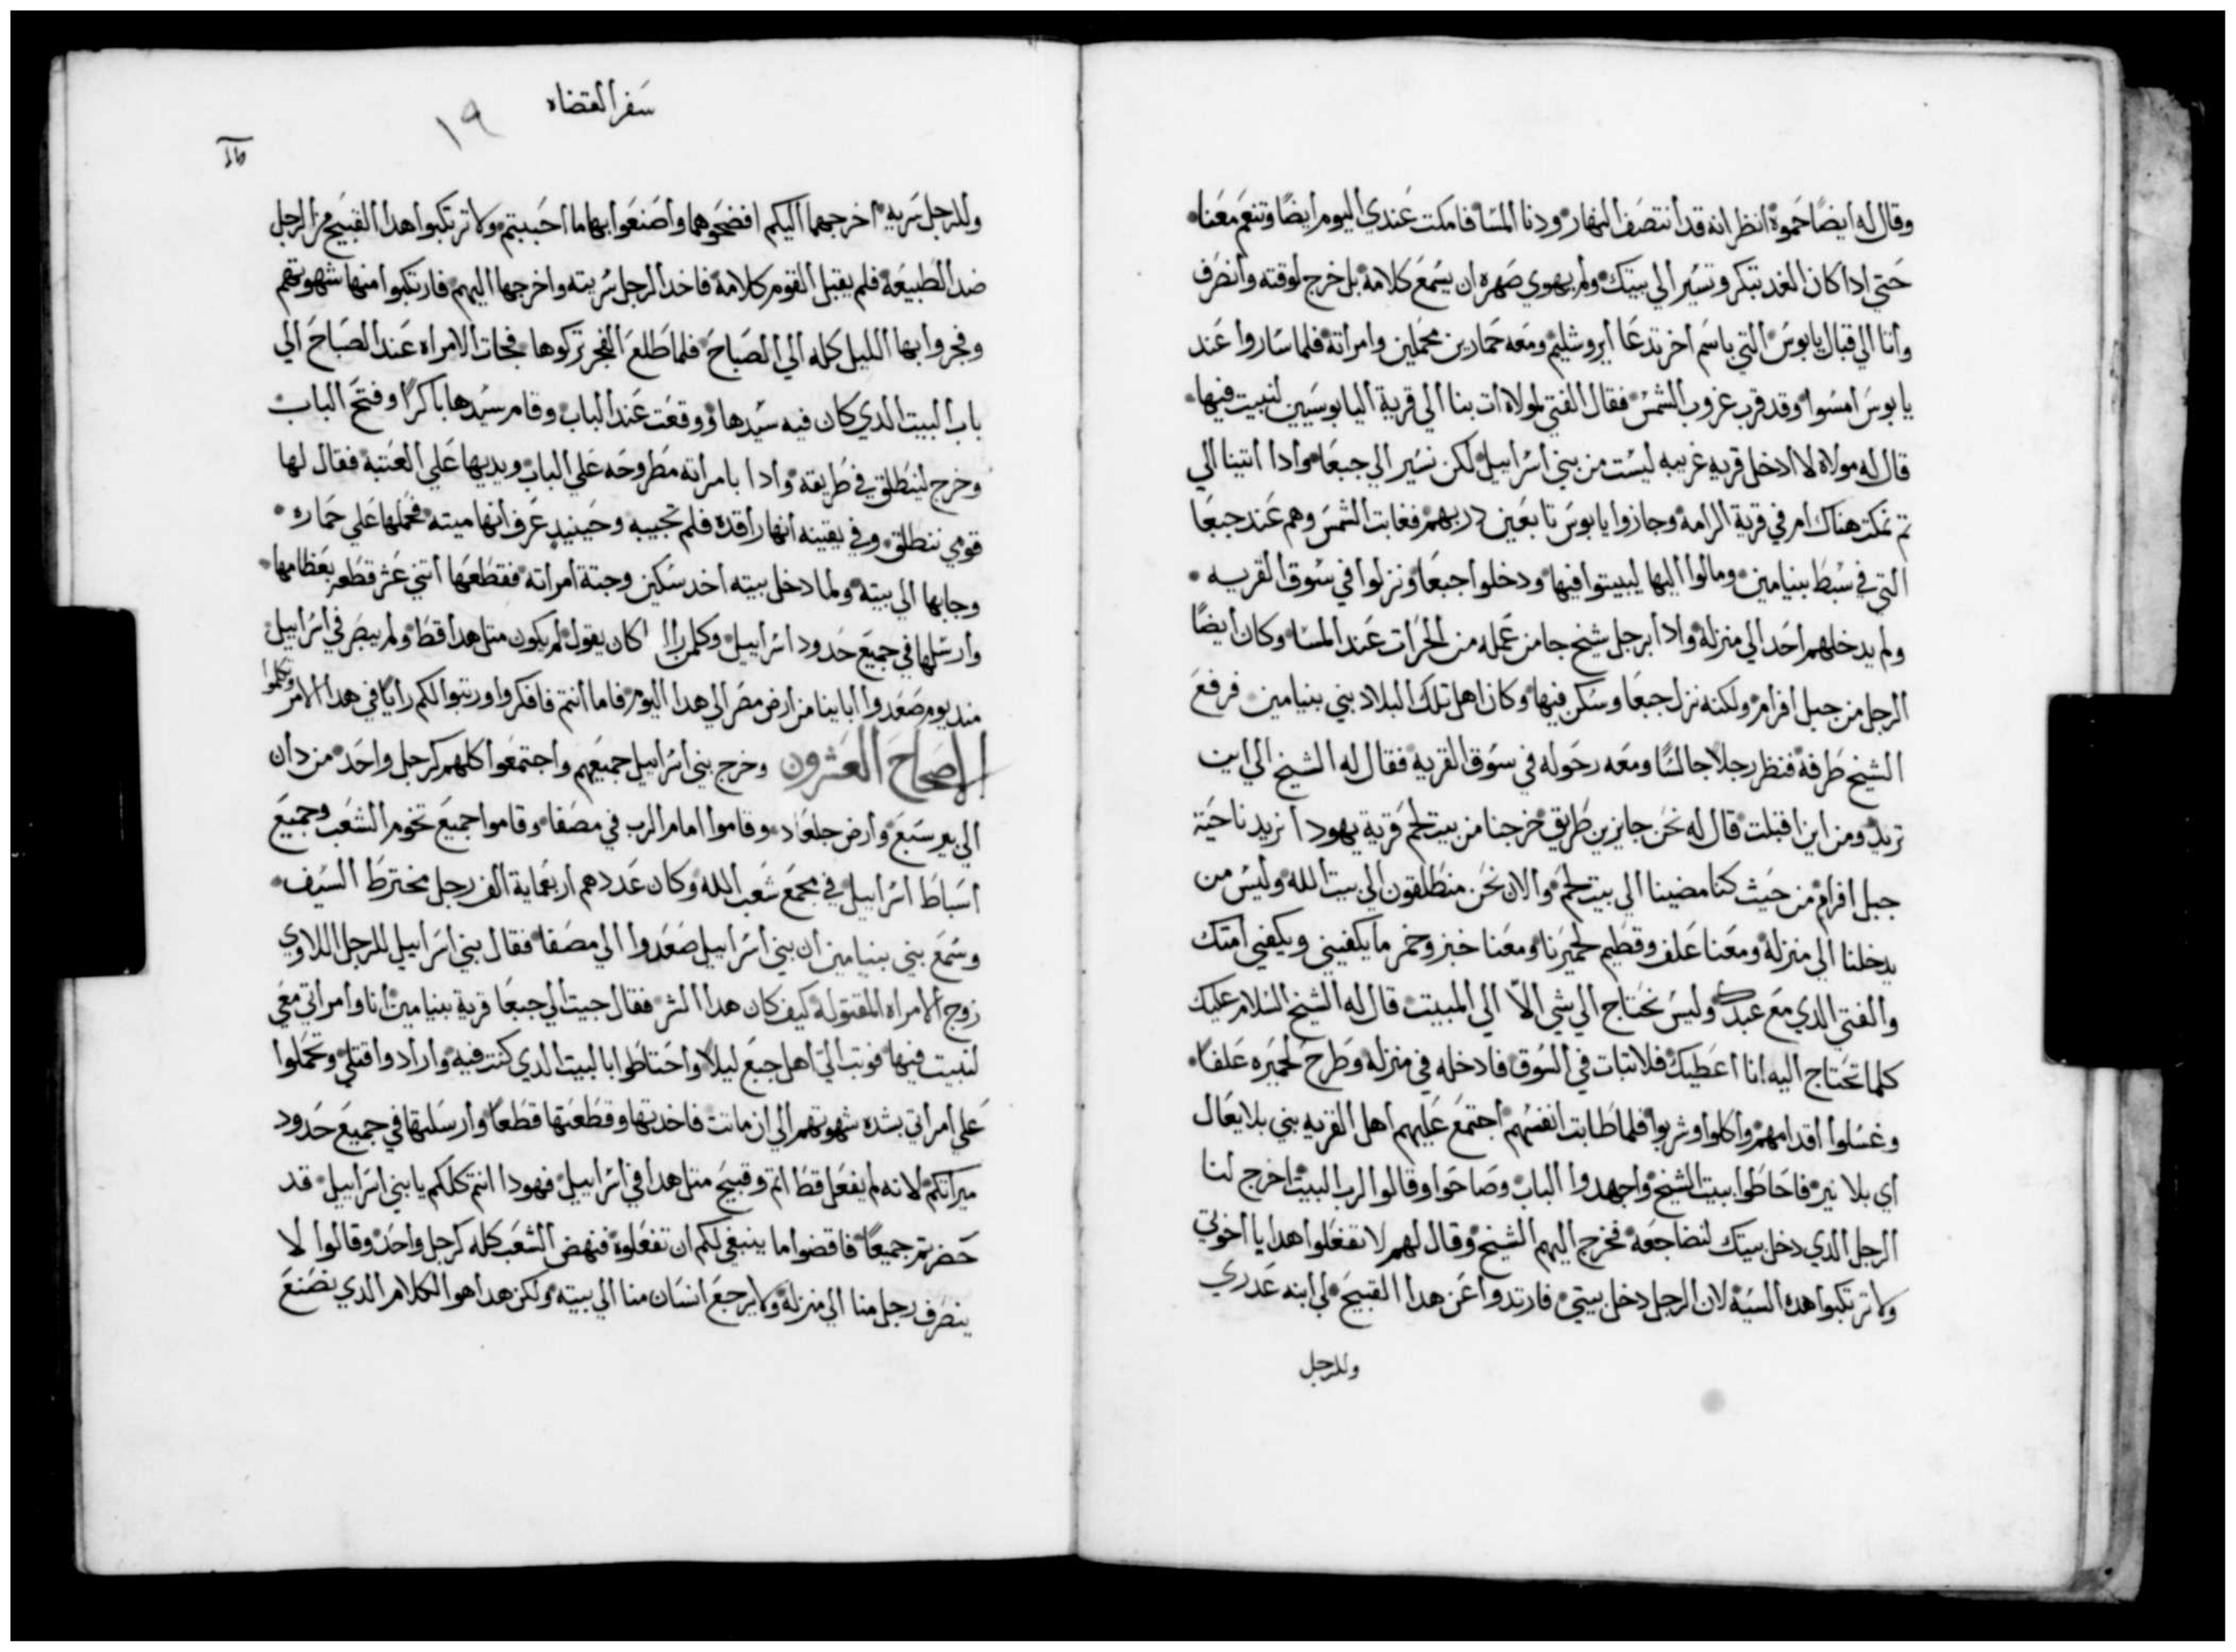 وقال له ايضًا حموه انظر انه قد انتصف النهار ودنا المسا فامكت عندي اليوم ايضًا وتنعم معنا
حتي ادا كان الغد تبكر وتسير الي بيتك ولم يهوي صهره ان يسمع كلامه بل خرج لوقته وانصرف
وأتا الي قبال يابوس التي باسم اخر تدعا أيروشليم ومعه حمارين محملين وامراته فلما ساروا عند
يابوس امسوا وقد قرب غروب الشمس فقال الفتي لمولاه ات بنا الي قرية اليابوسيين لنبيت فيها
قال له مولاه لا ادخل قريه غريبه ليست من بني أسراييل لكن نسير الي جبعا وأدا اتينا الي
تم نمكت هناك ام في قرية الرامه وجازوا يابوس تابعين دربهم فغابت الشمس وهم عند جبعا
التي في سبط بنيامين ومالوا اليها ليبيتوا فيها ودخلوا جبعا ونزلوا في سوق القريه
ولم يدخلهم احد الي منزله وادا برجل شيخ جا من عمله من الحرات عند المسا وكان أيضًا
الرجل من جبل أفرام ولكنه نزل جبعا وسكن فيها وكان اهل تلك البلاد بني بنيامين فرفع
الشيخ طرفه فنظر رجلا جالسًا ومعه رحوله في سوق القريه فقال له الشيخ الي اين
تريد ومن اين اقبلت قال له نحن جايزين طريق خرجنا من بيت لحم قرية يهودا نريد ناحية
جبل افرام من حيث كنا مضينا الي بيت لحم والان نحن منطلقون الي بيت الله وليس من
يدخلنا الي منزله ومعنا علف وقطيم لحميرنا ومعنا خبز وخمر ما يكفيني ويكفي أمتك
والفتي الدي مع عبدك وليس نحتاج الي شي الا الي المبيت قال له الشيخ السلام عليك
كلما تحتاج اليه انا اعطيك فلا تبات في السوق فادخله في منزله وطرح لحميره علفًا
وغسلوا أقدامهم واكلوا وشربوا فلما طابت انفسهم أجتمع عليهم اهل القريه بني بلا يعال
اي بلا نير فاحاطوا ببيت الشيخ واجهدوا الباب وصاحوا وقالوا لرب البيت اخرج لنا
الرجل الدي دخل بيتك لنضاجعه فخرج اليهم الشيخ وقال لهم لا تفعلوا هدا يا أخوتي
ولا ترتكبوا هده السيه لان الرجل دخل بيتي فارتدوا عن هدا القبيح لي ابنه عدري
وللرجل
سفر القضاه
١٩
وللرجل سريه اخرجهما اليكم افضحوهما وأصنعوا بهما ما احببتم ولا ترتكبوا هدا القبيح مع الرجل
ضد الطبيعه فلم يقبل القوم كلامه فاخد الرجل سريته واخرجها اليهم فارتكبوا منها شهوتهم
وفجروا بها الليل كله الي الصباح فلما طلع الفجر تركوها فجات الامراه عند الصباح الي
باب البيت الدي كان فيه سيدها ووقعت عند الباب وقام سيدها باكرًا وفتح الباب
وخرج لينطلق في طريقه وادا بامراته مطروحه علي الباب ويديها علي العتبه فقال لها
قومي ننطلق وفي يقينه أنها راقده فلم تجيبه وحينيد عرف أنها ميته فحملها علي حماره
وجابها الي بيته ولما دخل بيته اخد سكين وجتة أمراته فقطعها أتني عشر قطعه بعظامها
وأرسلها في جميع حدود اسراييل وكلمن را كان يقول لم يكون متل هدا قط ولم يبصر في أسراييل
مند يوم صعدوا ابايينا من أرض مصر الي هدا اليوم فاما أنتم فافكروا ورتبوا لكم رايًا في هدا الامر وتكلموا
الاصحاح العشرون وخرج بني أسراييل جميعهم واجتمعوا كلهم كرجل واحد من دان
الي بير سبع وأرض جلعاد وقاموا امام الرب في مصفا وقاموا جميع تخوم الشعب وجميع
أسباط اسراييل في مجمع شعب الله وكان عددهم أربعماية الف رجل مخترط السيف
وسمع بني بنيامين أن بني أسراييل صعدوا الي مصفا فقال بني اسراييل للرجل اللاوي
زوج ألامراه المقتوله كيف كان هدا الشر فقال جيت الي جبعا قرية بنيامين انا وأمراتي معي
لنبيت فيها فوتب الي أهل جبع ليلًا وأحتاطوا بالبيت الدي كنت فيه وأرادوا قتلي وتحملوا
علي أمراتي بشده شهوتهم الي ان ماتت فاخدتها وقطعتها قطعًا وأرسلتها في جميع حدود
ميراتكم لانه لم يفعل قط اتم وقبيح متل هدا في اسراييل فهودا انتم كلكم يا بني اسراييل قد
حضرتم جميعًا فاقضوا ما ينبغي لكم ان تفعلوه فنهض الشعب كله كرجل واحد وقالوا لا
ينصرف رجل منا الي منزله ولا يرجع انسان منا الي بيته ولكن هدا هو الكلام الدي نصنع